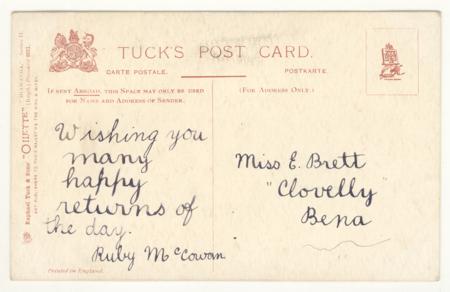 TUCK'S POST CARD.
CARTE POSTALE. POSTKARTE.
IF SENT ABROAD, THIS SPACE MAY ONLY BE USED
FOR NAME AND ADDRESS OF SENDER.
(FOR ADDRESS ONLY.)
Wishing you
many
happy
returns of
the day.
Ruby McCowan
Miss E. Brett
"Clovelly"
Bena
Printed in England.
Raphael Tuck & Sons' "OILETTE"